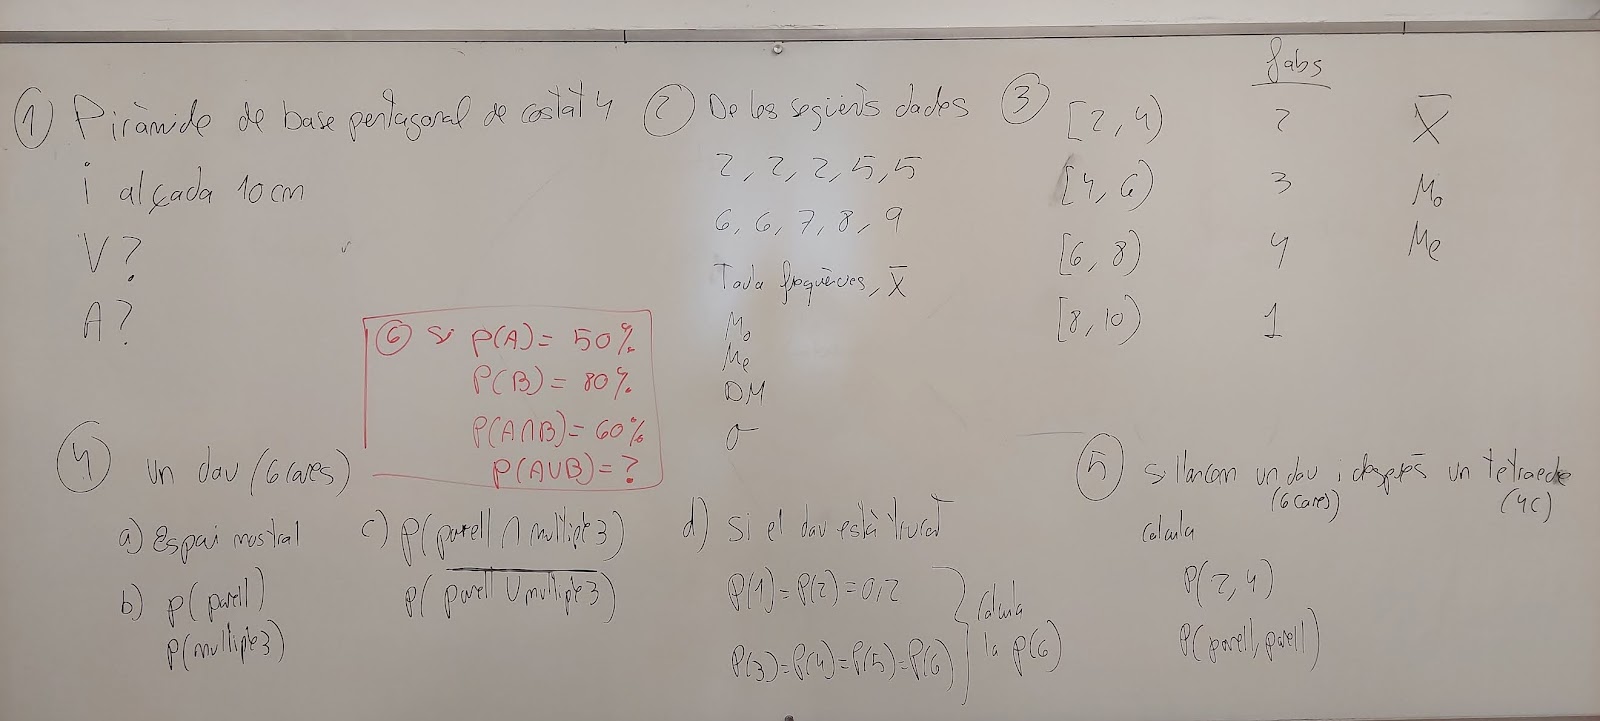 ① Piràmide de base pentagonal de costat 4
i alçada 10 cm
V?
A?
② De les següents dades
2, 2, 2, 5, 5
6, 6, 7, 8, 9
Taula freqüències, X̅
Mo
Me
DM
σ
③ fabs
[2, 4) 2 X̅
[4, 6) 3 Mo
[6, 8) 4 Me
[8, 10) 1
⑥ Si P(A) = 50%
P(B) = 80%
P(A∩B) = 60%
P(A∪B) = ?
④ Un dau (6 cares)
a) Espai mostral
b) p(parell)
p(multiple3)
c) p(parell ∩ multiple3)
p(p̅a̅r̅e̅l̅l̅ ̅∪̅ ̅m̅u̅l̅t̅i̅p̅l̅e̅3̅)
d) Si el dau està trucat
P(1)=P(2)=0,2
P(3)=P(4)=P(5)=P(6)
Calcula
la p(6)
⑤ Si llancem un dau i després un tetraedre
(6 cares) (4c)
Calcula
P(2, 4)
P(parell, parell)